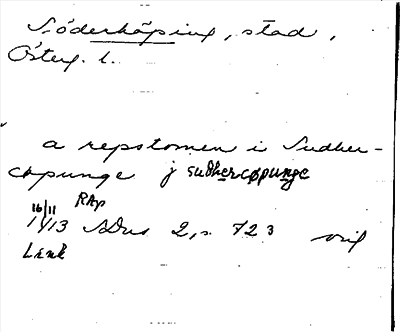 Söderköping, stad,
Österg. l.
a repstomen i Sudher-
copunge j sudhercøpunge
16/11 RAp
1413 SDns 2, s. 723 orig
Link